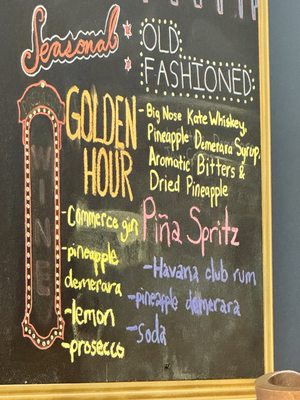 Seasonal
OLD
FASHIONED
- Big Nose Kate Whiskey,
Pineapple Demerara Syrup,
Aromatic Bitters &
Dried Pineapple
GOLDEN
HOUR
- Commerce gin
- pineapple
demerara
- lemon
- prosecco
Piña Spritz
- Havana club rum
- pineapple demerara
- soda
WINE